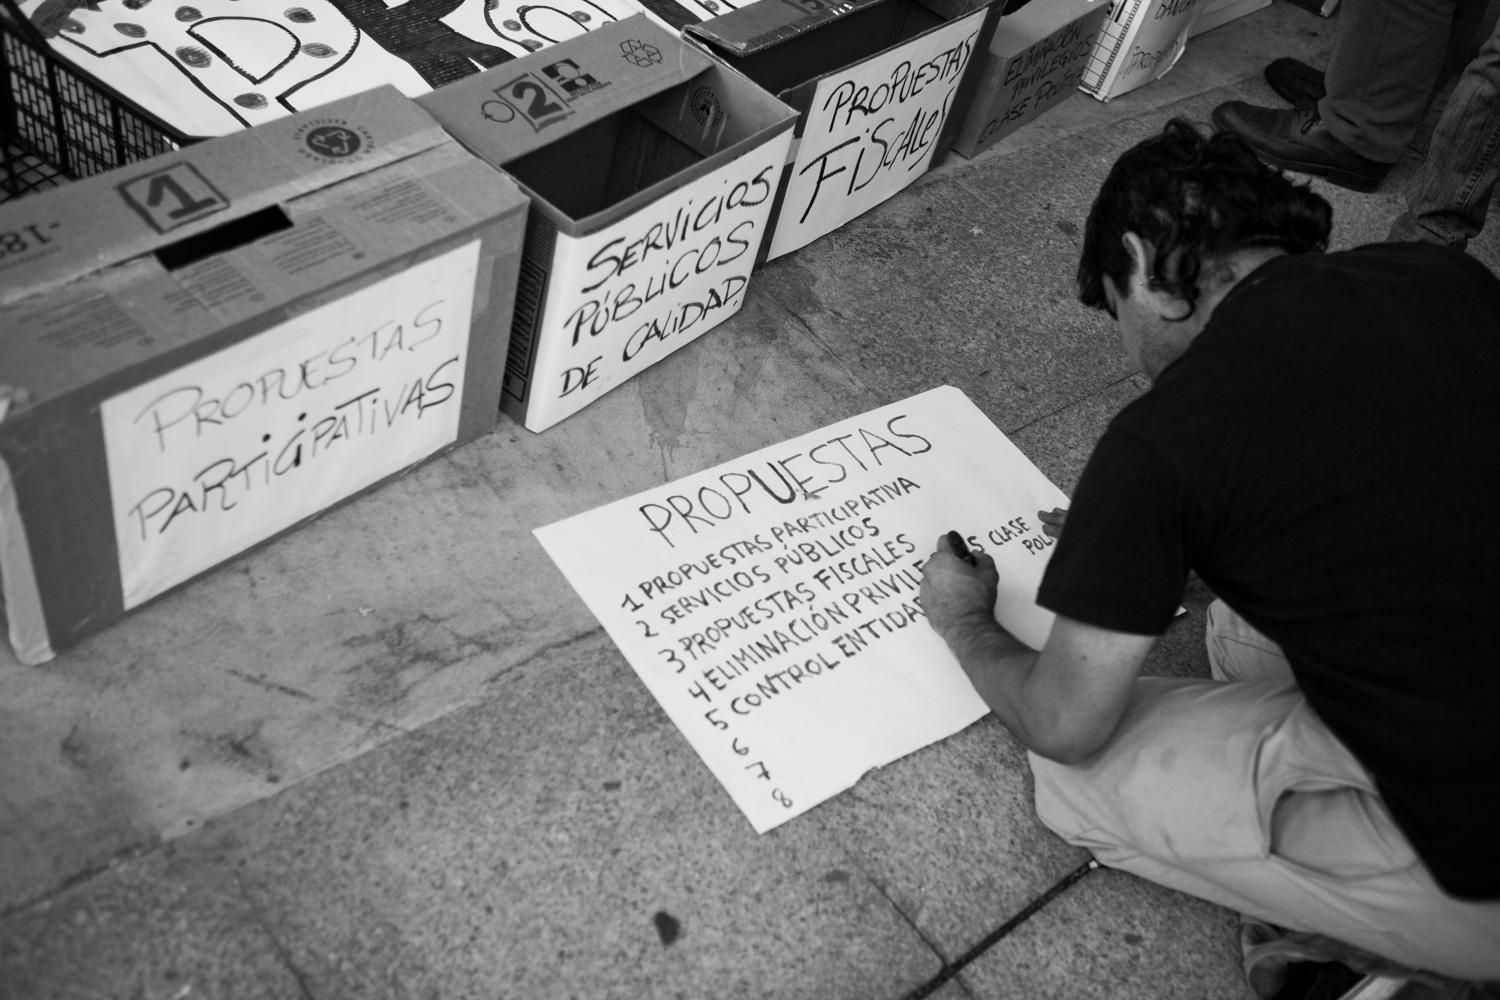 1
-18
PROPUESTAS
PARTICIPATIVAS
2
SERVICIOS
PÚBLICOS
DE CALIDAD.
PROPUESTAS
FISCALES
ELIMINACIÓN
PRIVILEGIOS
CLASE POLÍTICA
PROPUESTAS
1 PROPUESTAS PARTICIPATIVA
2 SERVICIOS PÚBLICOS
3 PROPUESTAS FISCALES
4 ELIMINACIÓN PRIVILE S CLASE
POL
5 CONTROL ENTIDA
6
7
8